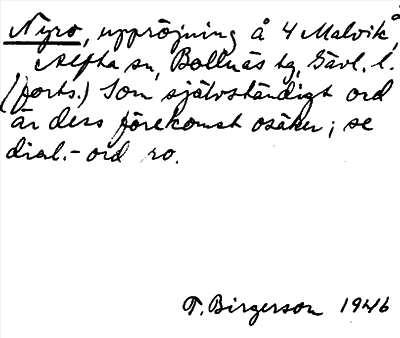 Nyro, uppröjning å 4 Malvik,
Alfta sn, Bollnäs tg, Gävl. l.
(forts.) Som självständigt ord
är dess förekomst osäker; se
dial.-ord ro.
T. Birgerson 1946